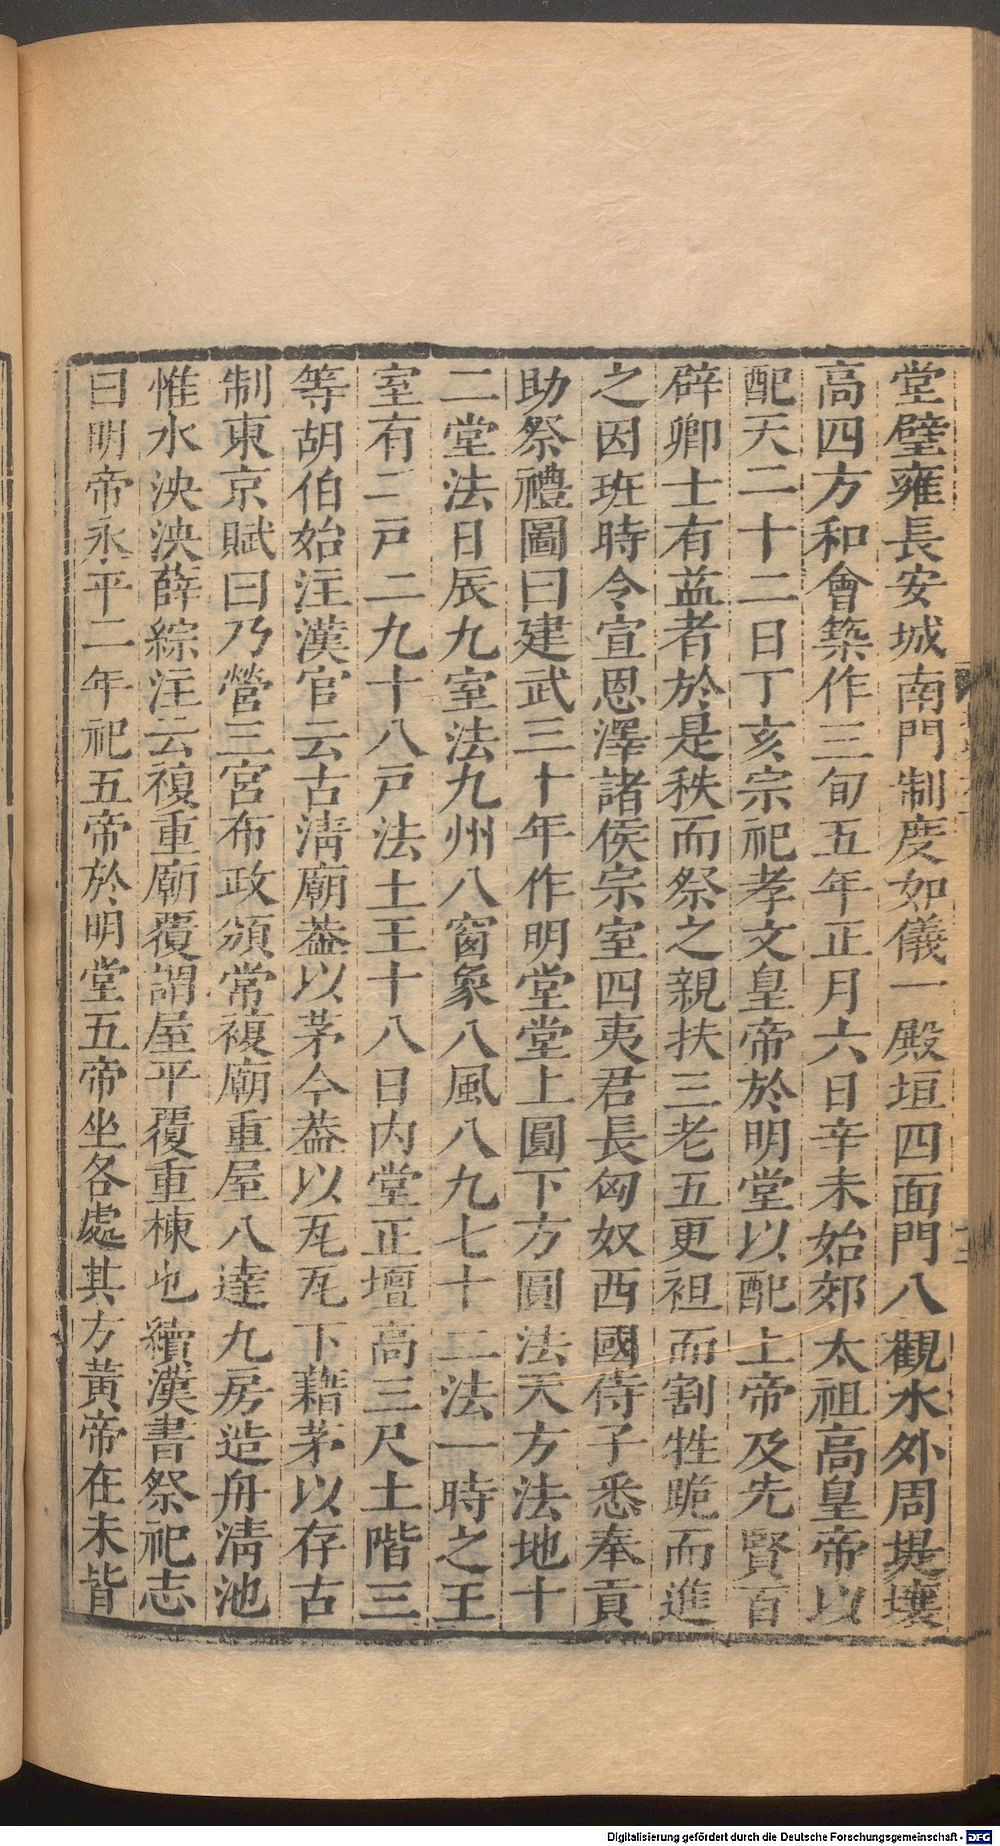 堂璧雍長安城南門制度如儀一殿垣四面門八觀水外周堤壤
高四方和會築作三旬五年正月六日辛未始郊太祖高皇帝以
配天二十二日丁亥宗祀孝文皇帝於明堂以配上帝及先賢百
辟卿士有益者於是秩而祭之親扶三老五更袒而割牲跪而進
之因班時令宣恩澤諸侯宗室四夷君長匈奴西國侍子悉奉貢
助祭禮圖曰建武三十年作明堂堂上圓下方圓法天方法地十
二堂法日辰九室法九州八窗象八風八九七十二法一時之王
室有二戸二九十八戸法土王十八日内堂正壇高三尺土階三
等胡伯始注漢官云古清廟葢以茅今葢以瓦瓦下藉茅以存古
制東京賦曰乃營三宮布政頒常複廟重屋八達九房造舟清池
惟水泱泱薛綜注云複重廟覆謂屋平覆重棟也續漢書祭祀志
曰明帝永平二年祀五帝於明堂五帝坐各處其方黄帝在未皆
Digitalisierung gefördert durch die Deutsche Forschungsgemeinschaft - DFG